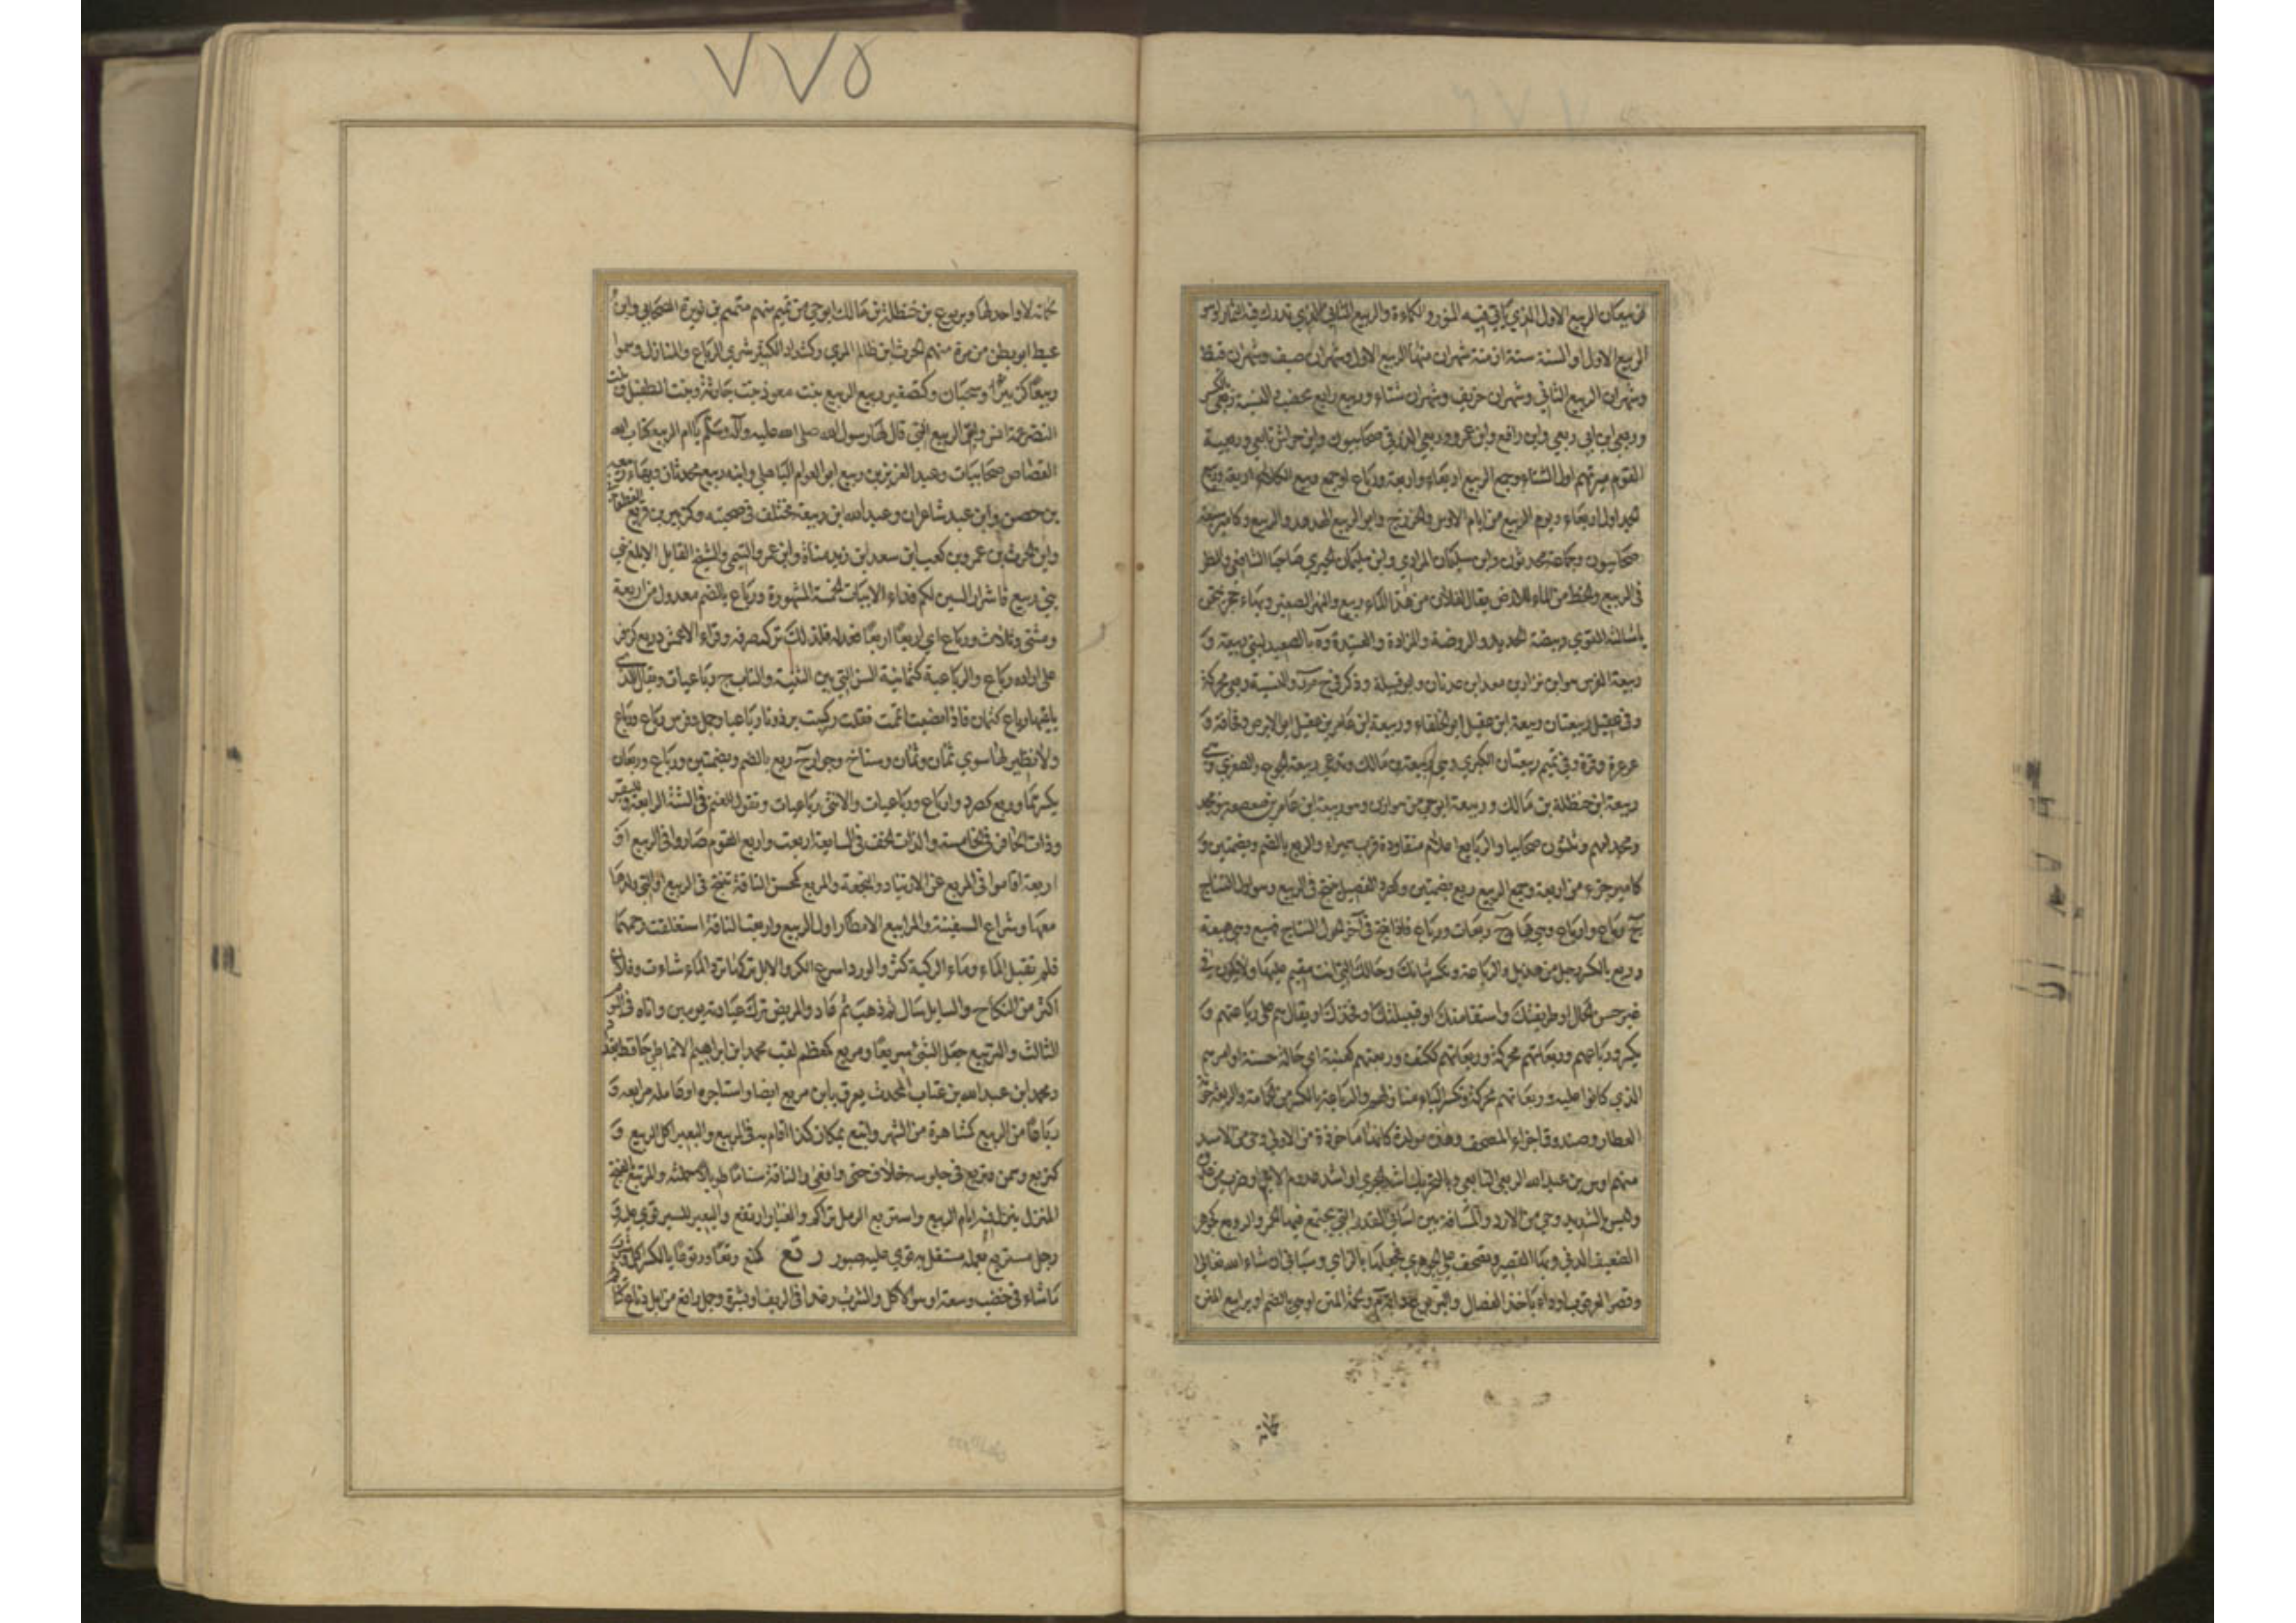 فربيعان الربيع الاول الذي ياتي فيه النور والكماءة والربيع الثاني الذي تدرك فيه الثمار او هو
الربيع الاول او السنة ستة ازمنة شهران منها الربيع الاول وشهران صيف وشهران قيظ
وشهران الربيع الثاني وشهران خريف وشهران شتاء وربيع رابع مخصب والنسبة ربعي بالكسر
وربعي ابن ابي ربعي وابن رافع وابن عمرو وربعي الزرقي صحابيون وابن حراش تابعي وربعية
القوم ميرتهم اول الشتاء وجمع الربيع اربعاء واربعة ورباع او جمع ربيع الكلاء اربعة وربيع
الجداول اربعاء ويوم الربيع من ايام الاوس والخزرج وابو الربيع الهدهد والربيع كامير سبعة
صحابيون وجماعة محدثون وابن سليمان المرادي وابن سليمان الجيزي صاحبا الشافعي والمطر
في الربيع والحظ من الماء للارض يقال لفلان من هذا الماء ربيع والنهر الصغير وبهاء حجر تمتحن
باشالته القوي وبيضة الحديد والروضة والمزادة والعتيدة وة بالصعيد لبني ربيعة و
ربيعة الفرس هو ابن نزار بن معد ابن عدنان ابو قبيلة وذكر في ح م ر والنسبة ربعي محركة
وفي عقيل ربيعتان ربيعة ابن عقيل ابو الخلفاء وربيعة ابن عامر بن عقيل ابو الابرص وقحافة و
عرعرة وقرة وفي تميم ربيعتان الكبرى وهي ربيعة بن مالك وتدعى ربيعة الجوع والصغرى وهي
ربيعة ابن حنظلة بن مالك وربيعة ابو حي من هوازن وهو ربيعة ابن عامر بن صعصعة بنو مجد
ومجد امهم وثلثون صحابيا والربايع اعلام متقاودة قرب سميراء والربع بالضم وبضمتين و
كامير جزء من اربعة وجمع الربيع ربع بضمتين وكصرد الفصيل ينتج في الربيع وهو اول النتاج
ج رباع وارباع وهي بهاء ج ربعات ورباع فاذا نتج في آخر النتاج فهبع وهي هبعة
وربع بالكسر رجل من هذيل والرباعة وتكسر شانك وحالك التي انت مقيم عليها ولا تكون في
غير حسن الحال او طريقتك واستقامتك او قبيلتك او فخذك او يقال هم على رباعتهم و
يكسر ورباعهم وربعاتهم محركة وربعاتهم ككتف وربعتهم كعنبة اي حالة حسنة او امرهم
الذي كانوا عليه وربعاتهم محركة وتكسر الباء منازلهم والرباعة بالكسر نحو الحمالة والربعة جونة
العطار وصندوق اجزاء المصحف وهذه مولدة كانها ماخوذة من الاولى وحي من الاسد
منهم اوس بن عبد الله الربعي التابعي وبالتحريك اشد الجري او اشد عدو الابل او ضرب من عدوه
وليس بالشديد وحي من الازد والمسافة بين اثافي القدر التي يجتمع فيها الجمر والروبع كجوهر
الضعيف الدني وبهاء القصير وتصحف على الجوهري فجعلها بالزاي وسياتي ان شاء الله تعالى
وقصر العرقوب او داء ياخذ الفصال واليربوع دابة م ولحمة المتن او هي بالضم او يرابيع المتن
٧٧٥
لحماته لا واحد لها ويربوع بن حنظلة بن مالك ابو حي من تميم منهم متمم بن نويرة الصحابي وابن
غيظ ابو بطن من مرة منهم الحرث ابن ظالم المري وكشداد الكثير شرى الرباع والمنازل وسموا
ربيعا كزبير وسحبان وكتصغير ربيع الربيع بنت معوذ بنت حارثة وبنت الطفيل وبنت
النضر عمة انس وهي ام الربيع التي قال لها رسول الله صلى الله عليه وآله وسلم يا ام الربيع كتاب الله
القصاص صحابيات وعبد العزيز بن ربيع ابو العوام الباهلي وابنه ربيع محدثان وبهاء ربيعة
بن حصن وابن عبد شاعران وعبد الله ابن ربيعة مختلف في صحبته وكزبير بن قريع الغطفاني
وابن الحرث بن عمرو بن كعب ابن سعد ابن زيد مناة وابن عمرو التيمي والشيخ القايل الا ابلغ بني
بني ربيع فاشرار البنين لكم فداء الابيات الخمسة المشهورة ورباع بالضم معدول من اربعة
ومثنى وثلاث ورباع اي اربعا اربعا فعدله فلذلك ترك صرفه وقراء الاعمش وربع كزفر
على ارادة رباع والرباعية كثمانية السن التي بين الثنية والناب ج رباعيات ويقال للذي
يلقيها رباع كثمان فاذا نصبت اتممت فقلت ركبت برذونا رباعيا وجمل وفرس رباع ورباع
ولا نظير لها سوى ثمان ويمان وشناح وجوار ج ربع بالضم وبضمتين ورباع وربعان
يكسرهما وربع كصرد وارباع ورباعيات والانثى رباعيات وتقول للغنم في السنة الرابعة وللبقر
وذات الحافر في الخامسة ولذات الخف في السابعة اربعت واربع القوم صاروا في الربيع او
اربعة اقاموا في المربع عن الارتياد والنجعة والمربع كمحسن الناقة تنتج في الربيع او التي ولدها
معها وشراع السفينة والمرابيع الامطار اول الربيع واربعت الناقة استغلقت رحمها
فلم تقبل الماء وماء الركية كثر والورد اسرع الكر والابل تركها ترد الماء شاءت وفلان
اكثر من النكاح والسايل سال ثم ذهب ثم عاد والمريض ترك عيادته يومين واتاه في اليوم
الثالث والتربيع جعل الشئ مربعا ومربع كمعظم لقب محمد ابن ابراهيم الانماطي حافظ بغداد
ومحمد ابن عبد الله بن عتاب المحدث يعرف بابن مربع ايضا واستاجره او عامله مرابعة و
رباعا من الربيع كمشاهرة من الشهر وارتبع بمكان كذا اقام به في الربيع والبعير اكل الربيع و
كتربع وسمن وتربع في جلوسه خلاف جثى واقعى والناقة سناما طويلا حملته والمرتبع المنتج
المنزل ينزل فيه ايام الربيع واستربع الرمل تراكم والغبار ارتفع والبعير للسير قوي عليه و
رجل مستربع بعمله مستقل به قوي عليه صبور ر ت ع كمنع رتعا ورتوعا بالكسر اكل وشرب
ما شاء في خصب وسعة او هو الاكل والشرب رغدا في الريف او بشره وجمل راتع من ابل رتاع